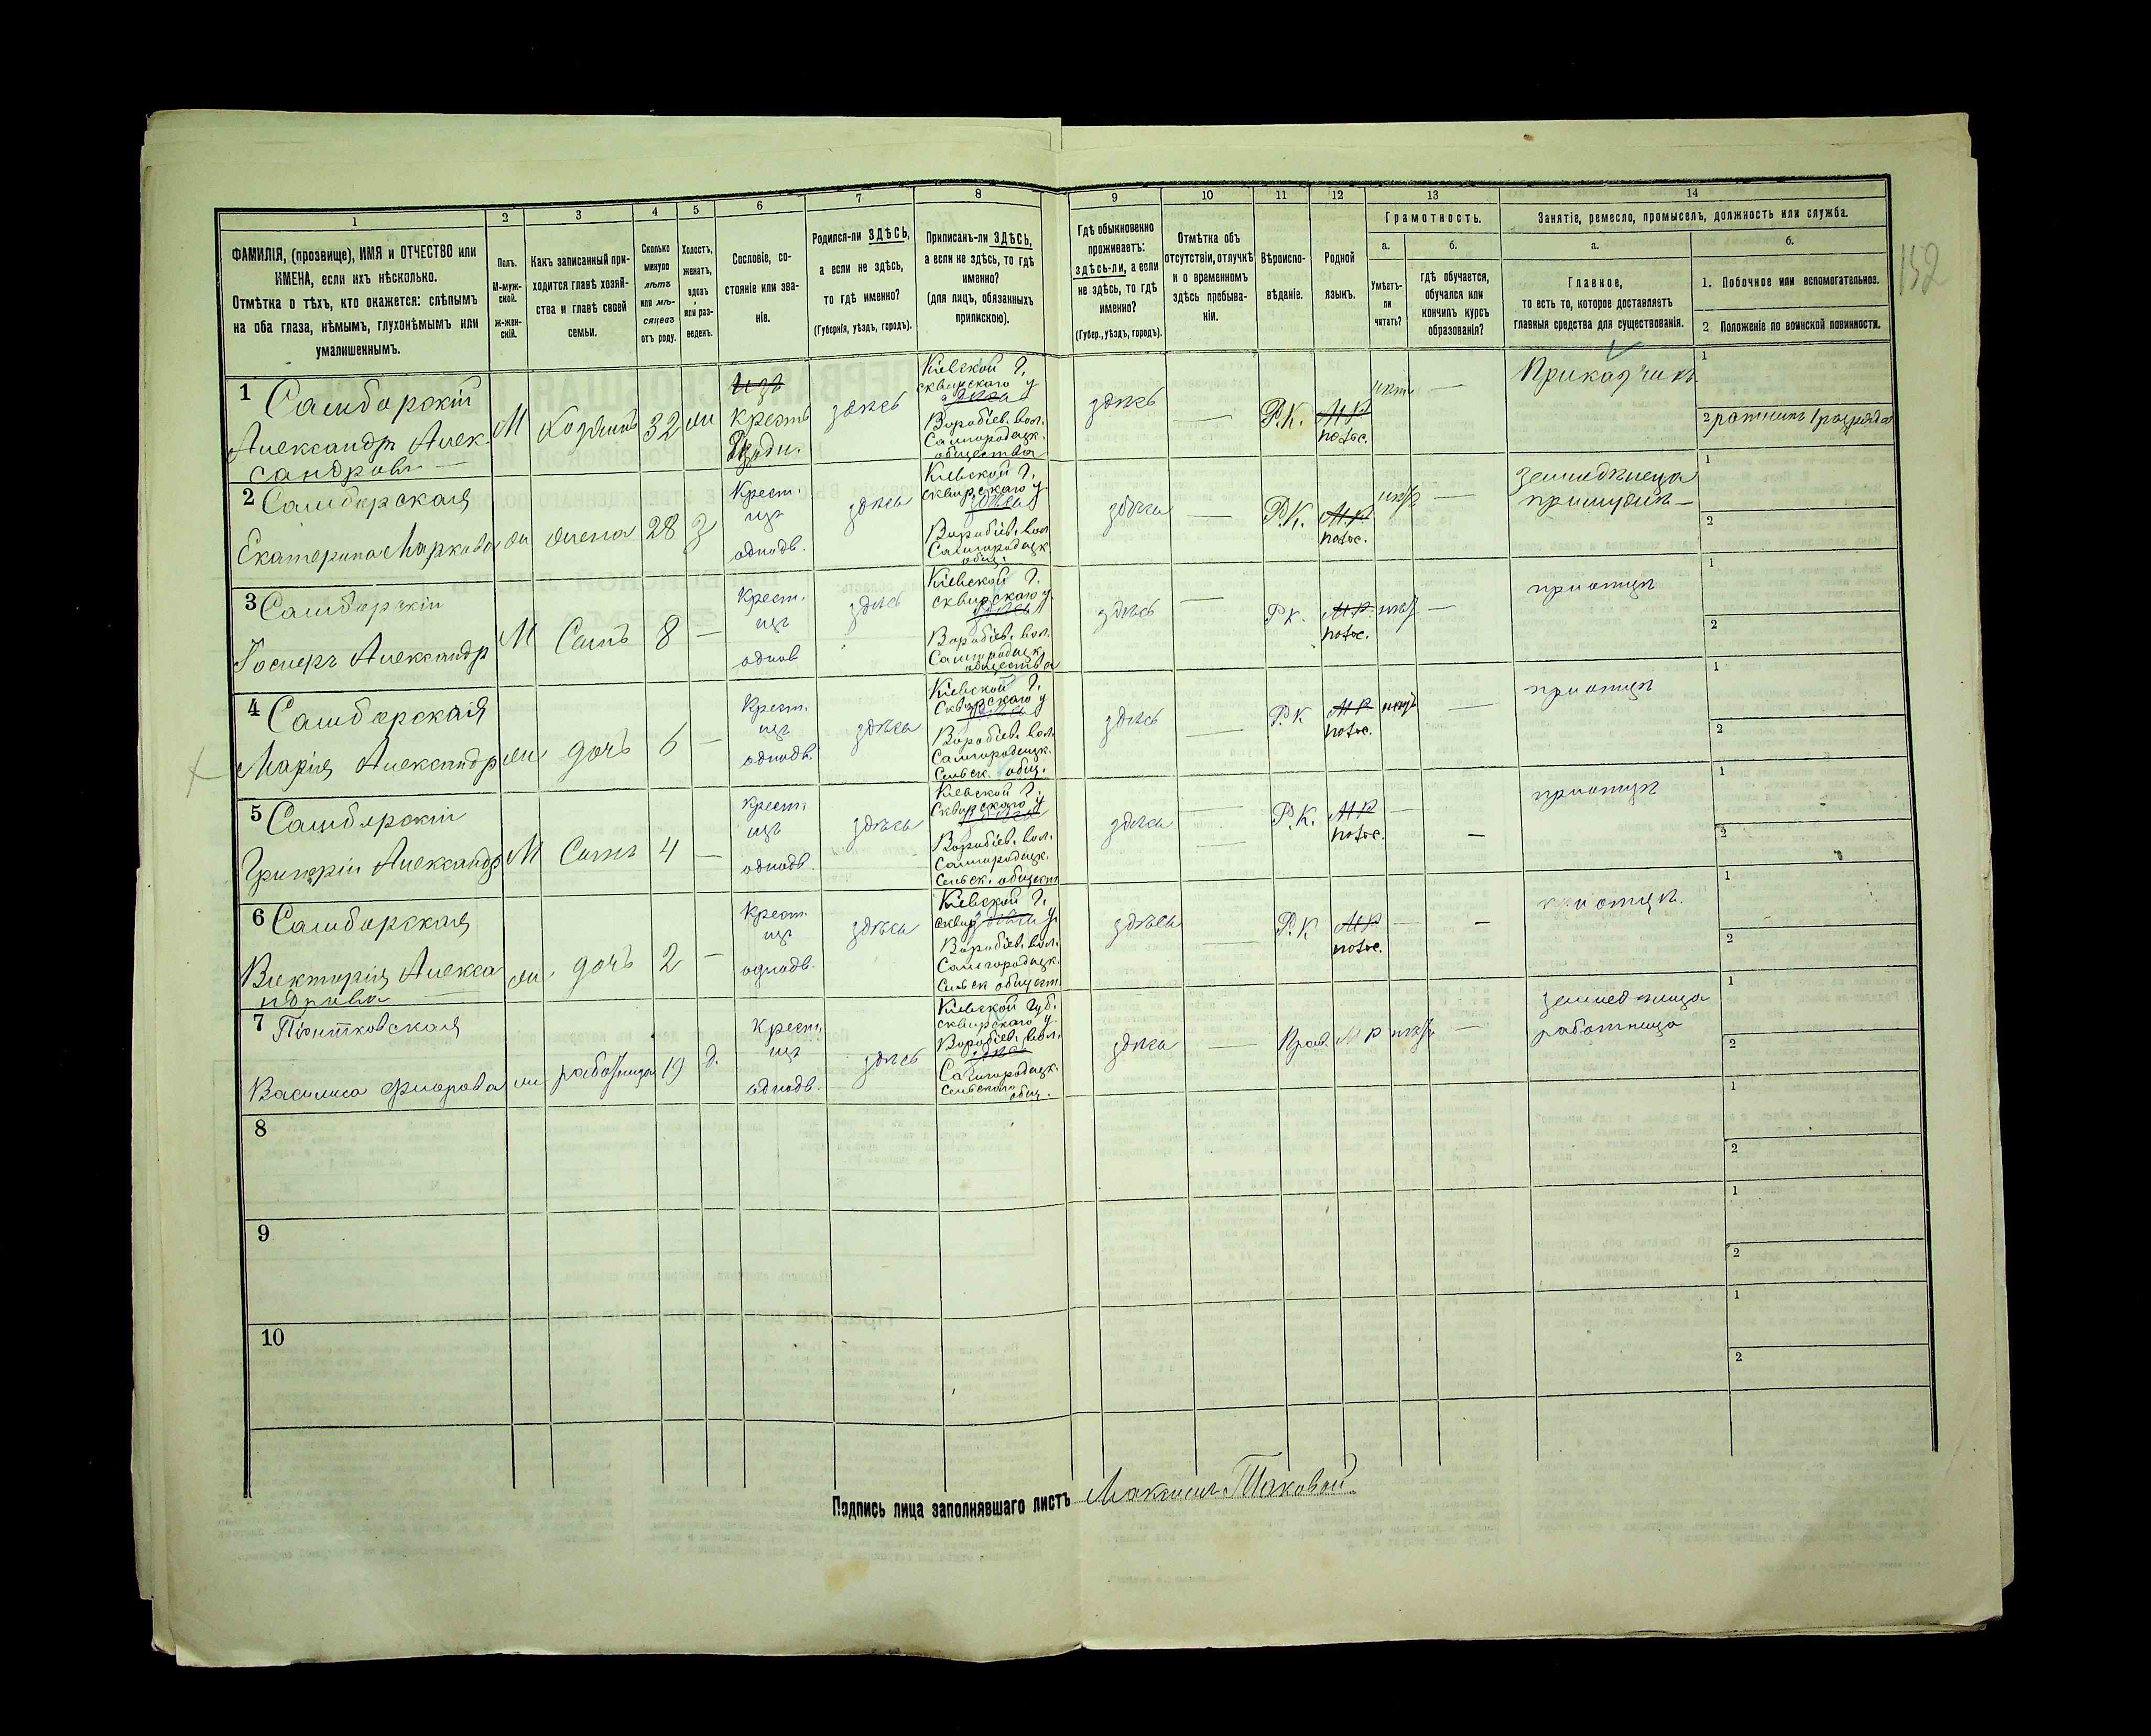 1 2 3 4 5 6 7 8 9 10 11 12 13 14
ФАМИЛІЯ, (прозвище), ИМЯ и ОТЧЕСТВО или
ИМЕНА, если ихъ нѣсколько.
Отмѣтка о тѣхъ, кто окажется: слѣпымъ
на оба глаза, нѣмымъ, глухонѣмымъ или
умалишеннымъ.
Полъ.
М-муж-
ской.
ж-жен-
скій.
Какъ записанный при-
ходится главѣ хозяй-
ства и главѣ своей
семьи.
Сколько
минуло
лѣтъ
или мѣ-
сяцевъ
отъ роду.
Холостъ,
женатъ,
вдовъ
или раз-
веденъ.
Сословіе, со-
стояніе или зва-
ніе.
Родился-ли ЗДѢСЬ,
а если не здѣсь,
то гдѣ именно?
(Губернія, уѣздъ, городъ).
Приписанъ-ли ЗДѢСЬ,
а если не здѣсь, то гдѣ
именно?
(для лицъ, обязанныхъ
припискою).
Гдѣ обыкновенно
проживаетъ:
здѣсь-ли, а если
не здѣсь, то гдѣ
именно?
(Губер., уѣздъ, городъ).
Отмѣтка объ
отсутствіи, отлучкѣ
и о временномъ
здѣсь пребыва-
ніи.
Вѣроиспо-
вѣданіе.
Родной
языкъ.
Грамотность.
а.
Умѣетъ-
ли
читать?
б.
гдѣ обучается,
обучался или
кончилъ курсъ
образованія?
Занятіе, ремесло, промыселъ, должность или служба.
а.
Главное,
то есть то, которое доставляетъ
главныя средства для существованія.
б.
1. Побочное или вспомогательное.
2 Положеніе по воинской повинности.
152
1 Самборскій
Александръ Алек-
сандровъ
М
Хозяинъ
32
жи
изъ
крестъ
здѣсь
Кіевской г.
сквирскаго у
здѣсь
Воробіев. вол.
Самгородецк.
общества
здѣсь
—
Р.К.
М.Р
польс.
нѣтъ
—
Прикащикъ
1
2 ратникъ 1 разряда
2 Самборская
Екатерина Маркова
жи
жена
28
з
Крест.
изъ
однодв.
здѣсь
Кіевской г.
сквирскаго у.
здѣсь
Воробіев. вол
Самгородецк
общ.
здѣсь
—
Р.К.
М.Р.
польс.
нѣтъ
—
земледѣлеца
примужѣ —
1
2
3 Самборскій
Іосифъ Александр
М
Сынъ
8
—
Крест.
изъ
однов
здѣсь
Кіевской г.
сквирскаго у.
здѣсь
Воробіев. вол.
Самгородецк
общества
здѣсь
—
Р к.
М.Р.
польс.
нѣтъ
—
приотцѣ
1
2
4 Самборская
Марія Александр
жи
дочь
6
—
Крест.
изъ
однодв.
здѣсь
Кіевской г.
Сквирскаго у
здѣсь
Воробіев. вол.
Самгородецк.
Сельск. общ.
здѣсь
—
Р.К
М Р
польс.
нѣтъ
—
приотцѣ
1
2
5 Самборскій
Григорій Александр
М
Сынъ
4
—
крест.
изъ
однодв.
здѣсь
Кіевской г.
Сквирскаго у
здѣсь
Воробіев. вол.
Самгородецк.
Сельск. общест
здѣсь
—
Р.К.
М Р
польс.
—
—
приотцѣ
1
2
6 Самборская
Викторія Алекса
ндрова
жи
дочь
2
—
Крест.
изъ
однодв.
здѣсь
Кіевской г.
сквир здѣсь у.
Воробіев. вол.
Самгородецк.
Сельск общест.
здѣсь
—
Р.К
М Р
польс.
—
—
приотцѣ.
1
2
7 Піонтковская
Василиса Фиорова
жи
работница
19
д.
Крест.
изъ
однодв.
здѣсь
Кіевской губ.
сквирскаго у.
Воробіев. вол.
здѣсь
Самгородецк.
Сельскаго
общ.
здѣсь
—
Прав.
М Р
нѣтъ
—
земледѣлица
работница
1
2
8
1
2
9
1
2
10
1
2
Подпись лица заполнявшаго листъ Максимъ Таковый